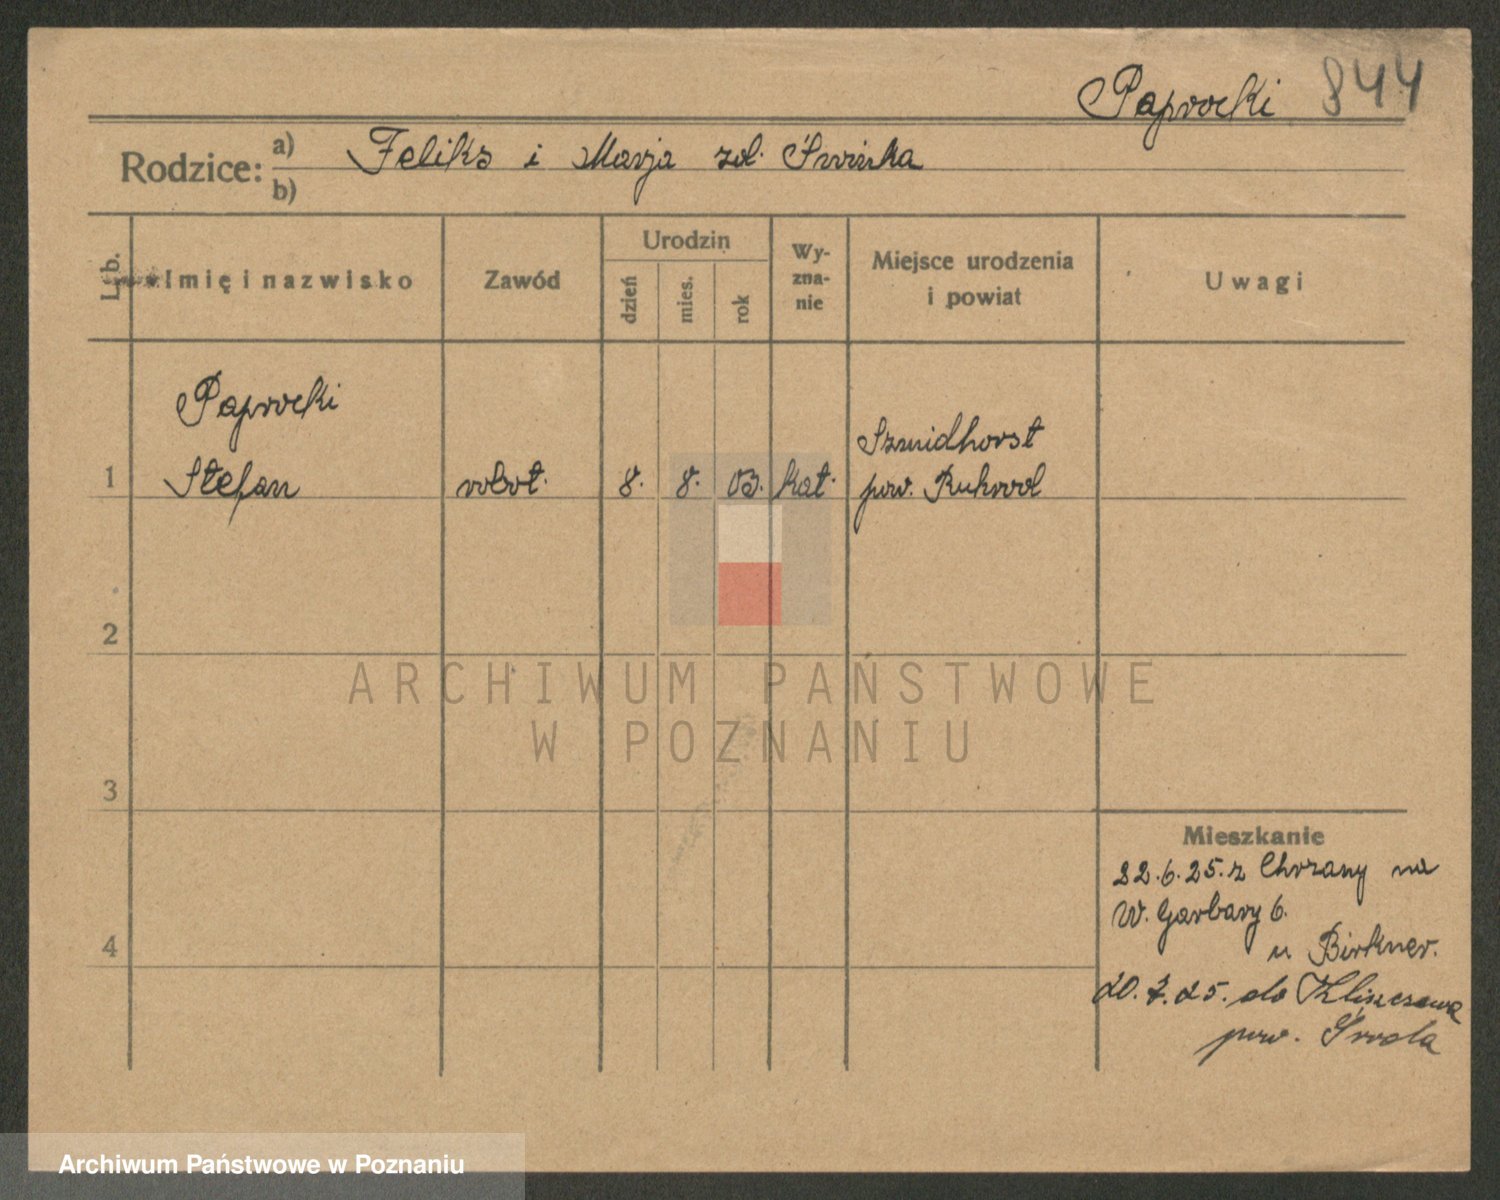 Paprocki 844
Rodzice: a) Feliks i Marja zd. Świrska
b)
L. b. Imię i nazwisko Zawód Urodzin dzień mies. rok Wy-zna-nie Miejsce urodzenia i powiat Uwagi
Paprocki
Szmidhorst
1 Stefan robot. 8. 8. 03. kat. pow. Ruhrod
2
ARCHIWUM PAŃSTWOWE
W POZNANIU
3
Mieszkanie
22.6.25. z Chrzany na
W. Garbary 6.
u Birkner.
4
20.7.25. do
pow. Środa
Archiwum Państwowe w Poznaniu